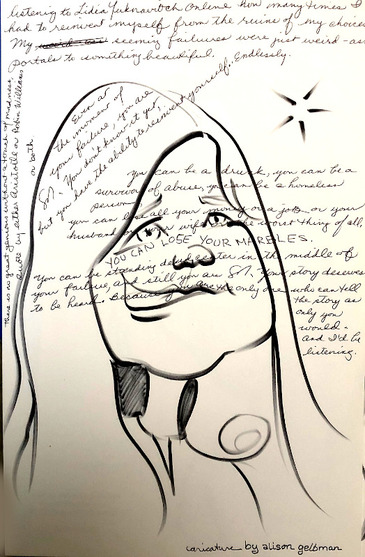 listening to Lidia Yuknavitch Online how many times I
had to reinvent myself from the ruins of my choices
My seeming failures were just weird-ass
portals to something beautiful. Endlessly.
Even at
the moment of
your failure, you are
You don't know it yet,
but you have the ability to reinvent yourself.
There is no great genius without a touch of madness
Quote by either Aristotle or Robin Williams
or both.
you can be a drunk, you can be a
survivor of abuse, you can be a homeless
person
you can lose all your money or a job or your
husband or your wife or the worst thing of all,
YOU CAN LOSE YOUR MARBLES.
You can be standing dead center in the middle of
your failure and still you are Your story deserves
to be heard. Because you are the only one who can tell
the story as
only you
would-
and I'd be
listening.
caricature by alison gelbman